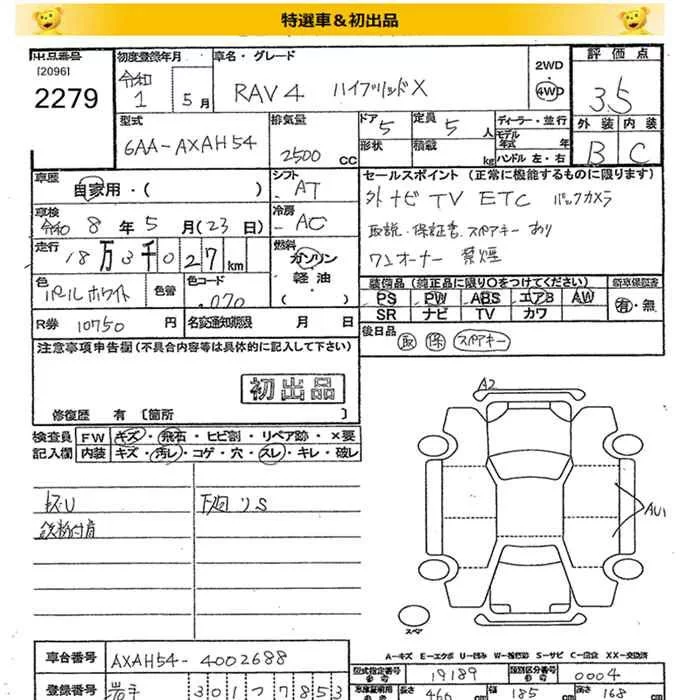 特選車＆初出品
出品番号 初度登録年月 車名・グレード 2WD 評価点
[2096] 令和 RAV4 ハイブリッドX 4WD 3.5
2279 1 5月
型式 排気量 ドア 定員 ディーラー・並行 外装 内装
6AA-AXAH54 2500 CC 5 5人 モデル年式 年 B C
形状 積載 kg ハンドル 左・右
車歴 自家用・( ) シフト AT セールスポイント (正常に機能するものに限ります)
外ナビ TV ETC バックカメラ
車検 令和 8年 5月(23日) 冷房 AC
取説・保証書・スペアキー あり
走行 18万3千027km 燃料 ガソリン・軽油・( )
ワンオーナー 禁煙
色 パールホワイト 色替 色コード 070
装備品 (純正品に限り○をつけてください) 新車保証書
PS PW ABS エアB AW 有・無
SR ナビ TV カワ
R券 10750円 名変通知期限 月 日
後日品 取 保 スペアキー
注意事項申告欄 (不具合内容等は具体的に記入して下さい)
初出品
修復歴 有 [箇所 ]
検査員 FW キズ・飛石・ヒビ割・リペア跡・×要
記入欄 内装 キズ・汚レ・コゲ・穴・スレ・キレ・破レ
下廻りS
鉄粉付着
A2
AU1
スペア
A-キズ E-エクボ U-凹み W-補修跡 S-サビ C-腐食 XX-交換済
車台番号 AXAH54-4002688
型式指定番号 19189 類別区分番号 0004
登録番号 岩手 301つ7853
長さ 466cm 幅 185cm 高さ 168cm